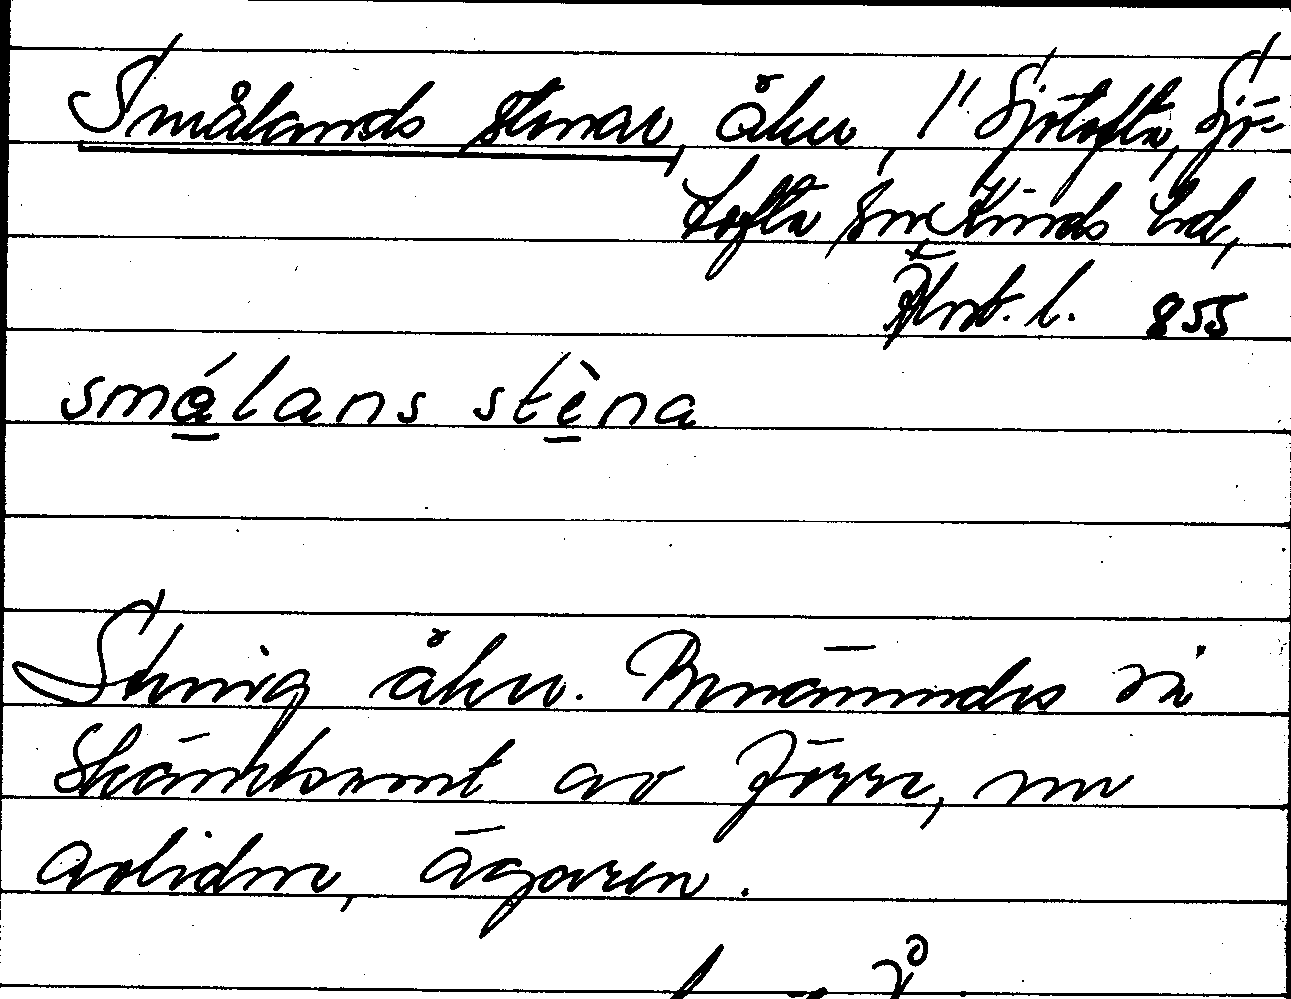 Smålands stenar, åker, 1" Sjötofta, Sjö=
tofta sn Kinds hd,
Älvsb. l. 855
smålans stèna
Stenig åker. Benämndes så
skämtsamt av förre, nu
avliden, ägaren.